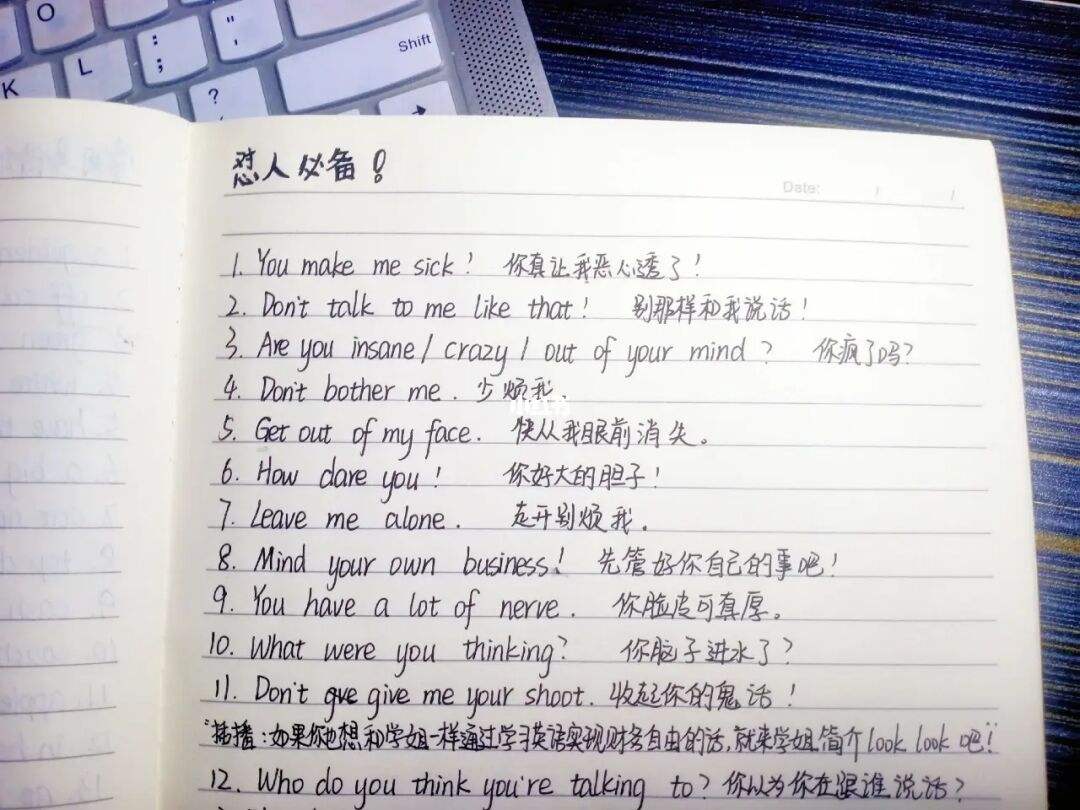 O
K
L
:
;
"
'
?
Shift
怼人必备!
Date: / /
1. You make me sick! 你真让我恶心透了!
2. Don't talk to me like that! 别那样和我说话!
3. Are you insane / crazy / out of your mind? 你疯了吗?
4. Don't bother me. 少烦我.
5. Get out of my face. 快从我眼前消失。
6. How dare you! 你好大的胆子!
7. Leave me alone. 走开别烦我.
8. Mind your own business! 先管好你自己的事吧!
9. You have a lot of nerve. 你脸皮可真厚。
10. What were you thinking? 你脑子进水了?
11. Don't give me your shoot. 收起你的鬼话!
"插播:如果你也想和学姐一样通过学习英语实现财务自由的话,就来学姐简介look look吧!"
12. Who do you think you're talking to? 你以为你在跟谁说话?